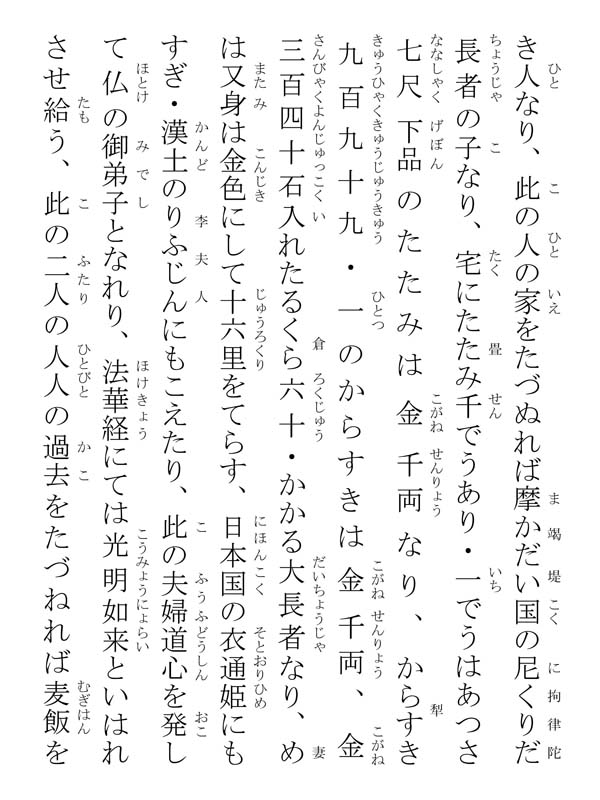 き人なり、此の人の家をたづぬれば摩かだい国の尼くりだ
長者の子なり、宅にたたみ千でうあり・一でうはあつさ
七尺下品のたたみは金千両なり、からすき
九百九十九・一のからすきは金千両、金
三百四十石入れたるくら六十・かかる大長者なり、め
は又身は金色にして十六里をてらす、日本国の衣通姫にも
すぎ・漢土のりふじんにもこえたり、此の夫婦道心を発し
て仏の御弟子となれり、法華経にては光明如来といはれ
させ給う、此の二人の人人の過去をたづねれば麦飯を